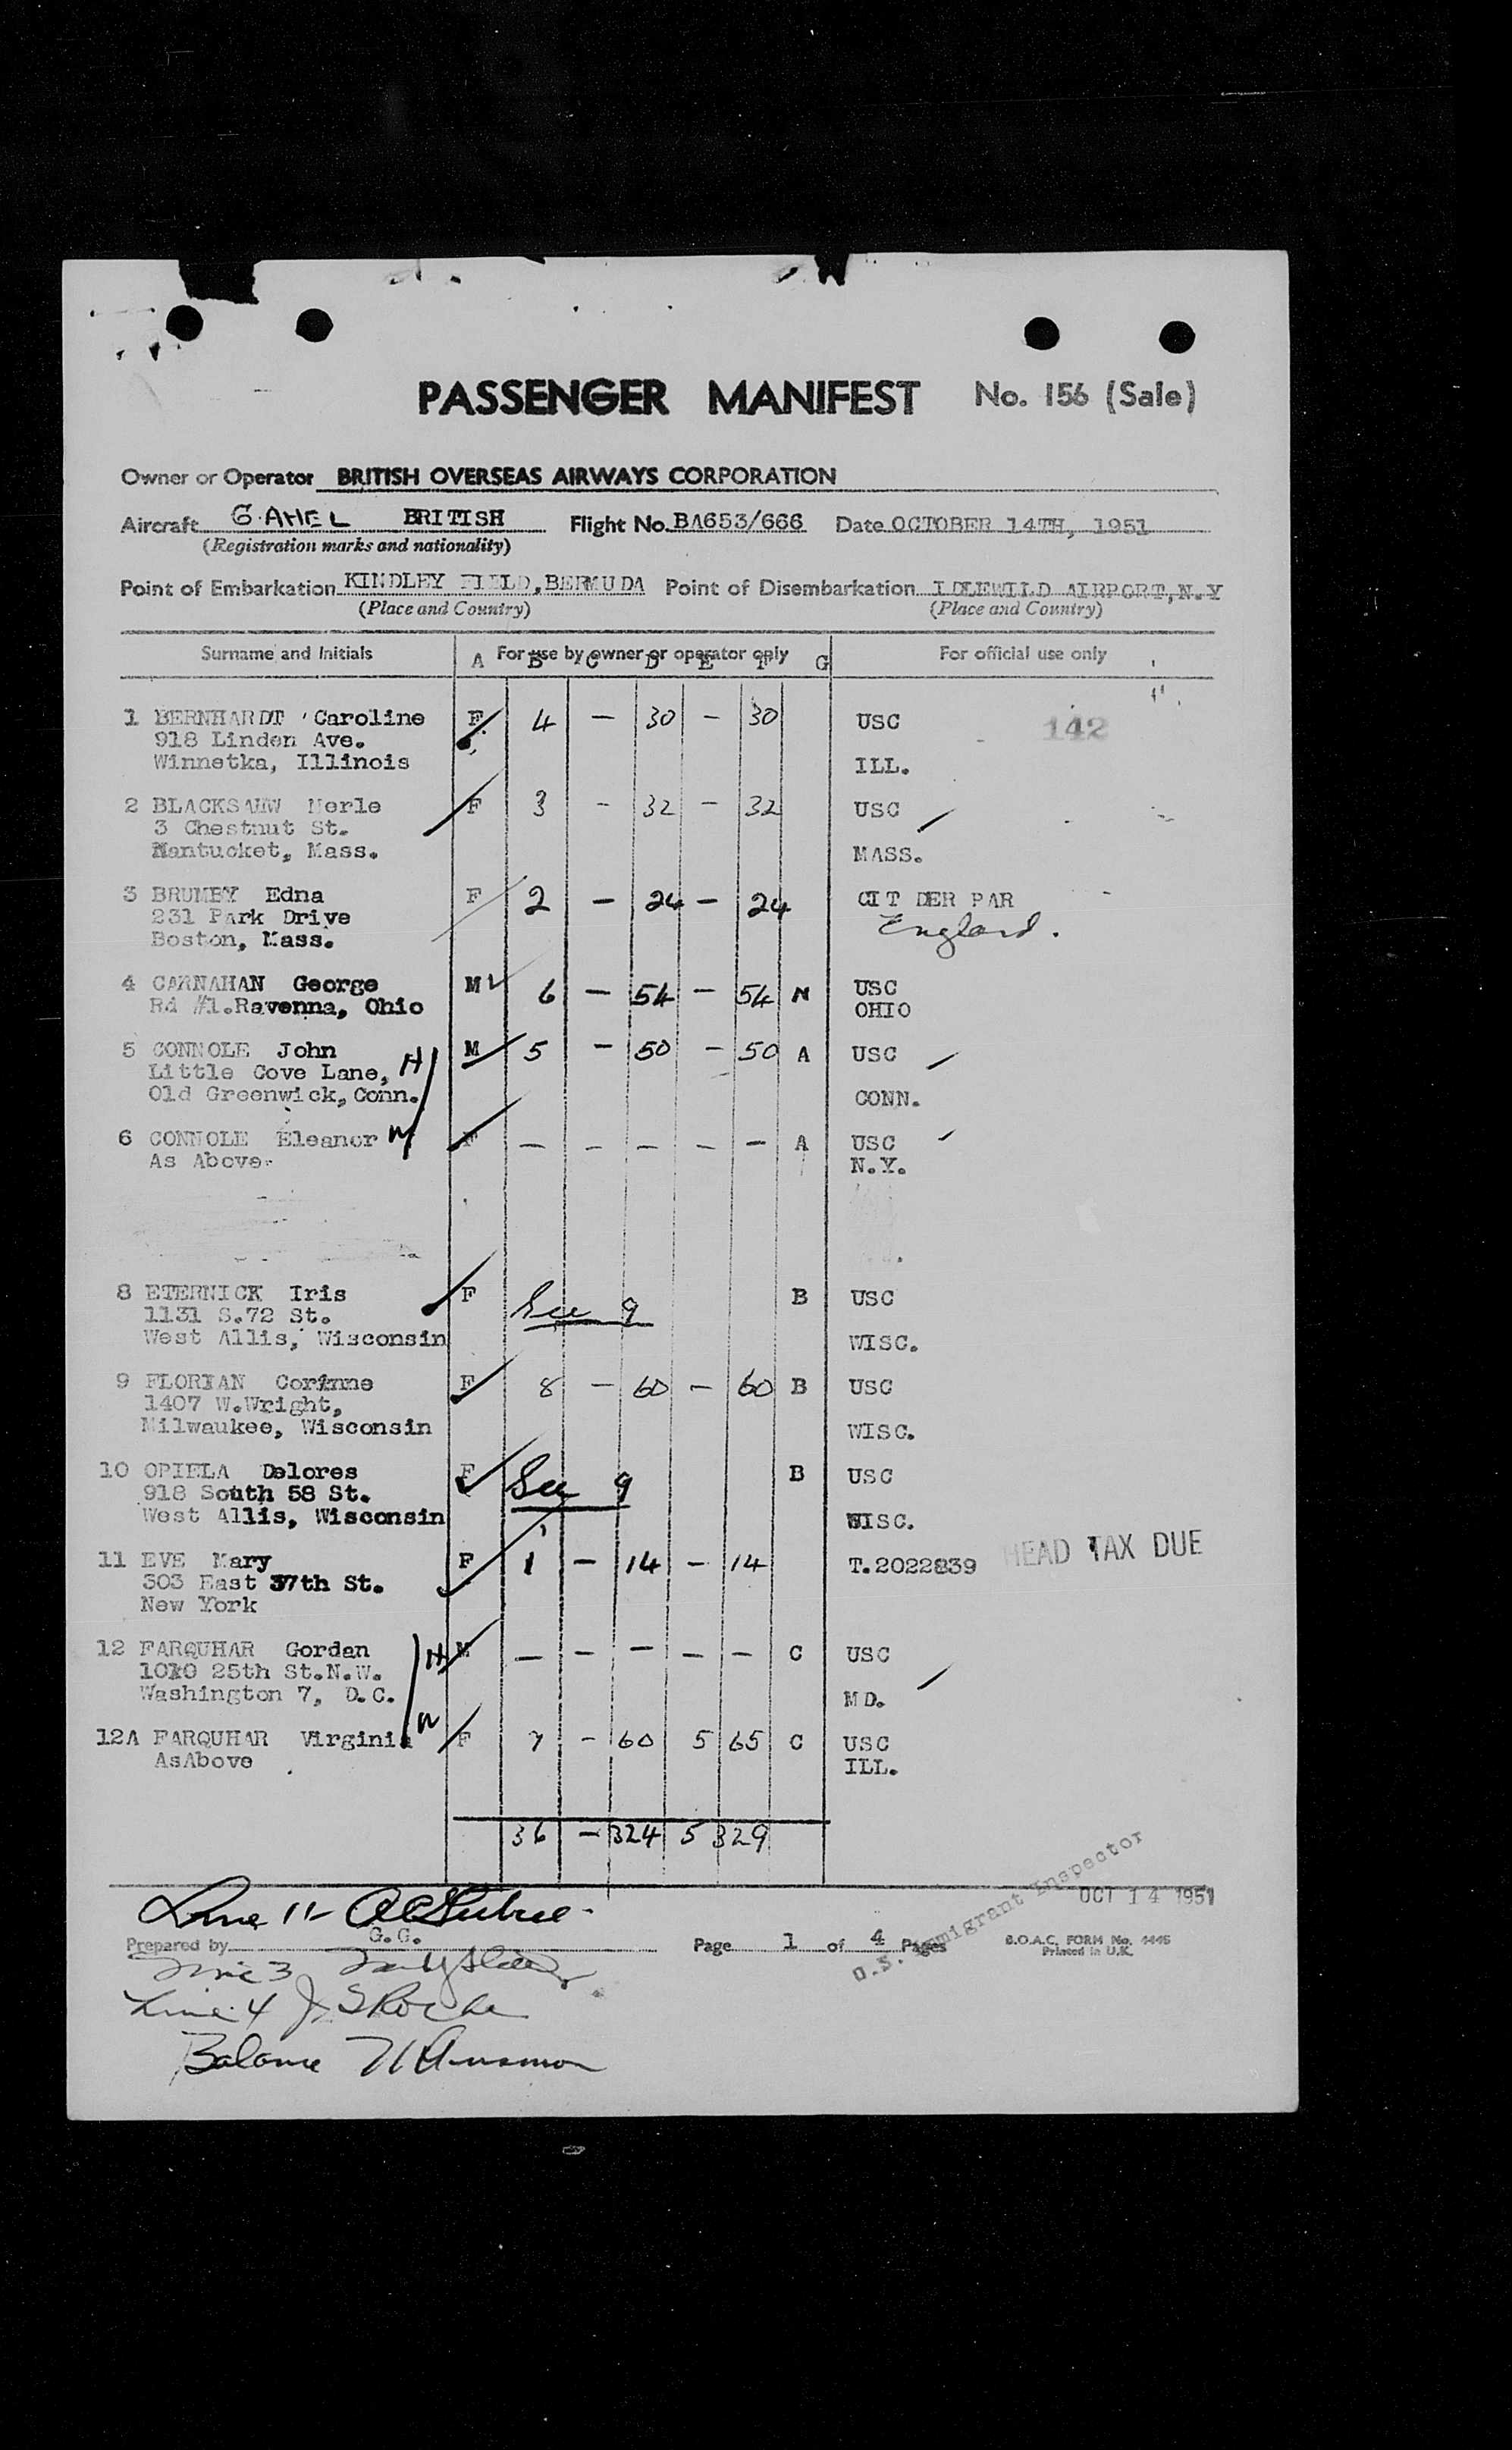 PASSENGER MANIFEST No. 156 (Sale)
Owner or Operator BRITISH OVERSEAS AIRWAYS CORPORATION
Aircraft G.AHEL BRITISH Flight No. BA653/666 Date OCTOBER 14TH, 1951
(Registration marks and nationality)
Point of Embarkation KINDLEY FIELD, BERMUDA Point of Disembarkation IDLEWILD AIRPORT, N.Y
(Place and Country) (Place and Country)
Surname and Initials For use by owner or operator only For official use only
A B C D E F G
1 BERNHARDT Caroline F 4 — 30 — 30 USC 142
918 Linden Ave.
Winnetka, Illinois ILL.
2 Merle F 3 - 32 - 32 USC
3 Chestnut St.
Nantucket, Mass. MASS.
3 BRUMBY Edna F 2 — 24 — 24 CIT DER PAR
231 Park Drive England.
Boston, Mass.
4 CARNAHAN George M 6 — 54 — 54 N USC
Rd #1. Ravenna, Ohio OHIO
5 CONNOLE John H M 5 — 50 — 50 A USC
Little Cove Lane,
Old Greenwick, Conn. CONN.
6 CONNOLE Eleanor W F — — — — — A USC
As Above. N.Y.
8 ETERNICK Iris F See 9 B USC
1131 S.72 St.
West Allis, Wisconsin WISC.
9 FLORIAN Corinne F 8 — 60 — 60 B USC
1407 W.Wright,
Milwaukee, Wisconsin WISC.
10 OPIELA Delores F See 9 B USC
918 South 58 St.
West Allis, Wisconsin WISC.
11 EVE Mary F 1 — 14 — 14 T.2022839 HEAD TAX DUE
303 East 37th St.
New York
12 FARQUHAR Gordan H M — — — — — C USC
1010 25th St.N.W.
Washington 7, D.C. MD.
12A FARQUHAR Virginia W F 7 — 60 5 65 C USC
AsAbove ILL.
36 — 324 5 329
U.S. Immigrant Inspector
OCT 14 1951
Line 11-
Prepared by G.G. Page 1 of 4 Pages B.O.A.C. FORM No. 4445
Printed in U.K.
Line 3
Line 4 J. S Roche
Balance